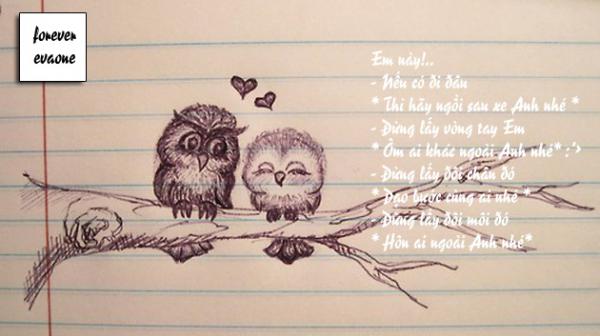 forever
evaone
Em này!..
- Nếu có đi đâu
* Thì hãy ngồi sau xe Anh nhé *
- Đừng lấy vòng tay Em
* Ôm ai khác ngoài Anh nhé* :">
- Đừng lấy đôi chân đó
* Dạo bước cùng ai nhé *
- Đừng lấy đôi môi đó
* Hôn ai ngoài Anh nhé*